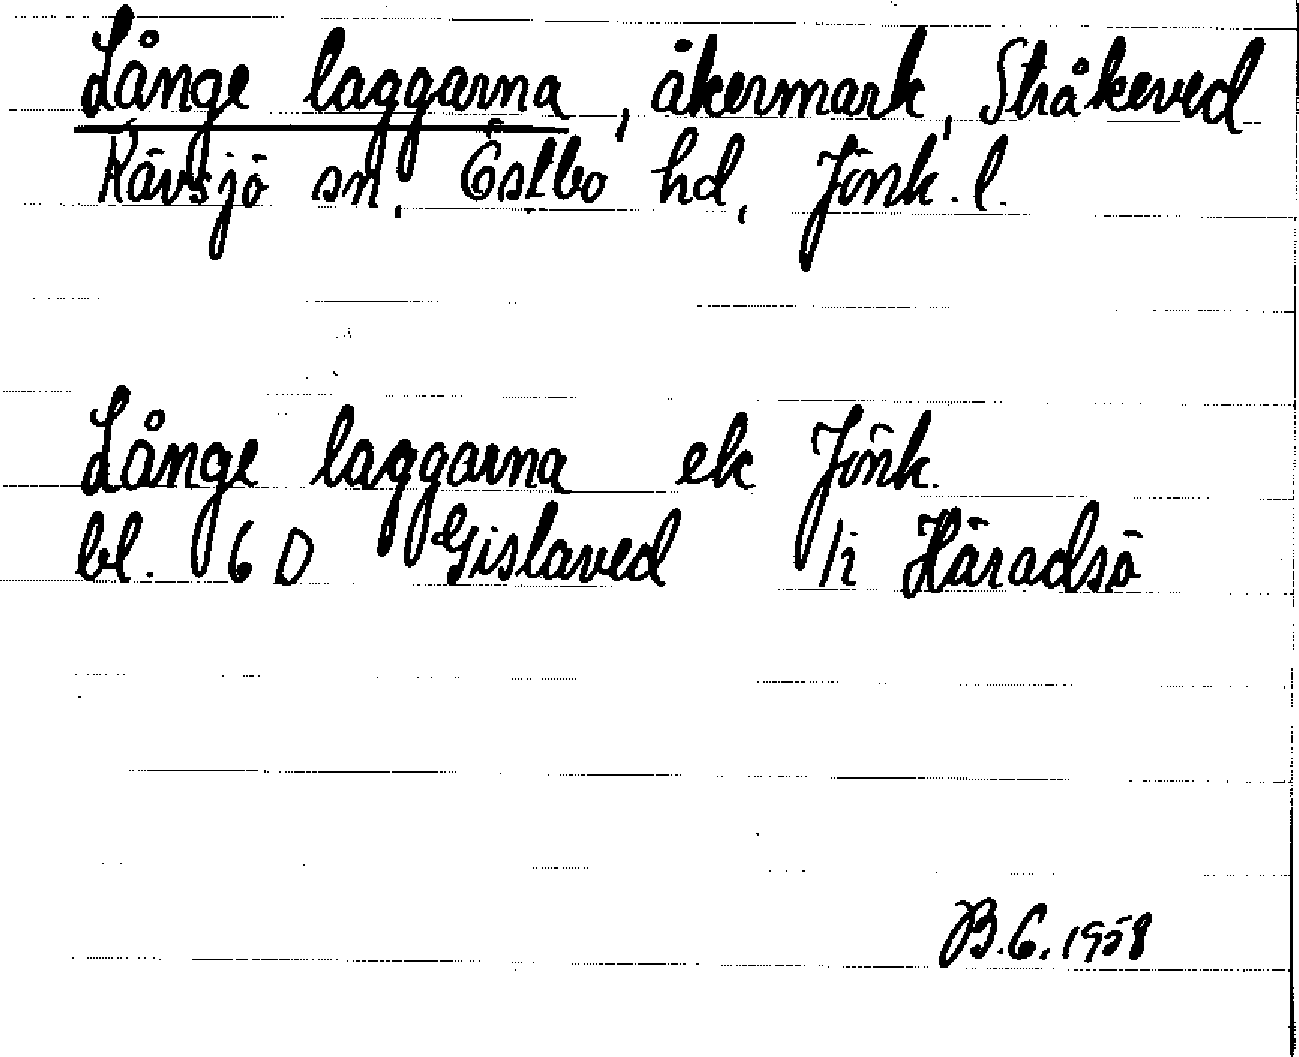 Långe laggarna, åkermark, Stråkeved
Kävsjö sn, Östbo hd, Jönk. l.
Långe laggarna ek Jönk.
bl. 6 D Gislaved /i Häradsö
B.C. 1958